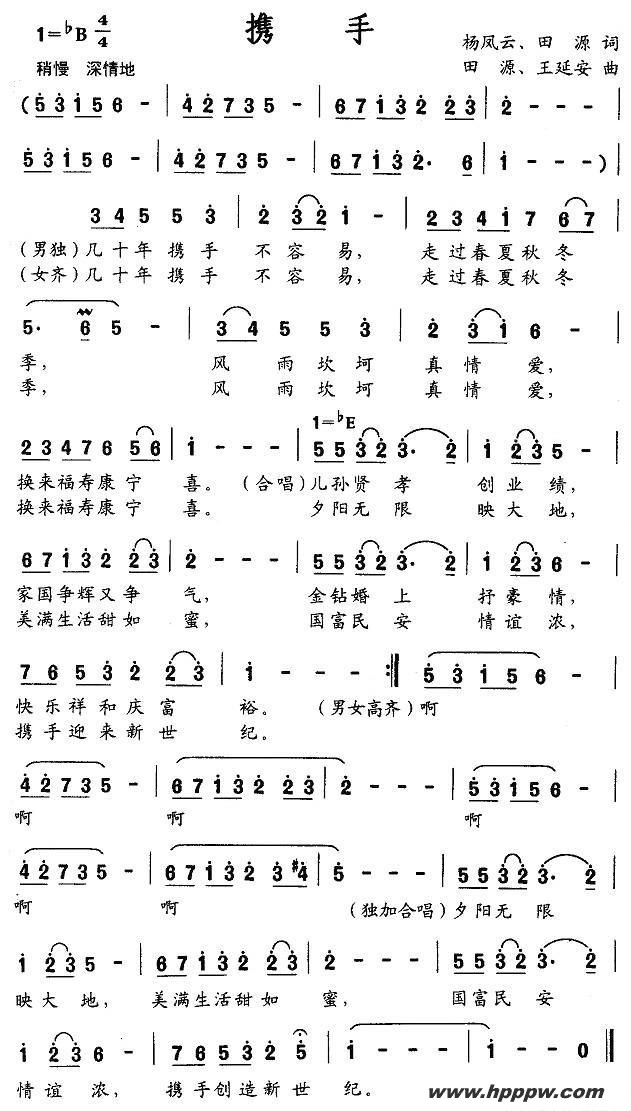 携 手
1=♭B 4/4
杨凤云、田 源 词
稍慢 深情地
田 源、王延安 曲
(5 3 1 5 6 - | 4 2 7 3 5 - | 6 7 1 3 2 2 3 | 2 - - -
5 3 1 5 6 - | 4 2 7 3 5 - | 6 7 1 3 2· 6 | 1 - - -)
3 4 5 5 3 | 2 3 2 1 - | 2 3 4 1 7 6 7
(男独)几十年携手 不容易, 走过春夏秋冬
(女齐)几十年携手 不容易, 走过春夏秋冬
5· 6 5 - | 3 4 5 5 3 | 2 3 1 6 -
季, 风雨坎坷 真情爱,
季, 风雨坎坷 真情爱,
1=♭E
2 3 4 7 6 5 6 | 1 - - - | 5 5 3 2 3· 2 | 1 2 3 5 -
换来福寿康宁 喜。 (合唱)儿孙贤孝 创业绩,
换来福寿康宁 喜。 夕阳无限 映大地,
6 7 1 3 2 2 3 | 2 - - - | 5 5 3 2 3· 2 | 1 2 3 6 -
家国争辉又争 气, 金钻婚上 抒豪情,
美满生活甜如 蜜, 国富民安 情谊浓,
7 6 5 3 2 2 3 | 1 - - - :| 5 3 1 5 6 -
快乐祥和庆富 裕。 (男女高齐)啊
携手迎来新世 纪。
4 2 7 3 5 - | 6 7 1 3 2 2 3 | 2 - - - | 5 3 1 5 6 -
啊 啊 啊
4 2 7 3 5 - | 6 7 1 3 2 3 #4 | 5 - - - | 5 5 3 2 3· 2
啊 啊 (独加合唱)夕阳无限
1 2 3 5 - | 6 7 1 3 2 2 3 | 2 - - - | 5 5 3 2 3· 2
映大地, 美满生活甜如 蜜, 国富民安
1 2 3 6 - | 7 6 5 3 2 5 | 1 - - - | 1 - - 0 ||
情谊浓, 携手创造新世 纪。
www.hpppw.com